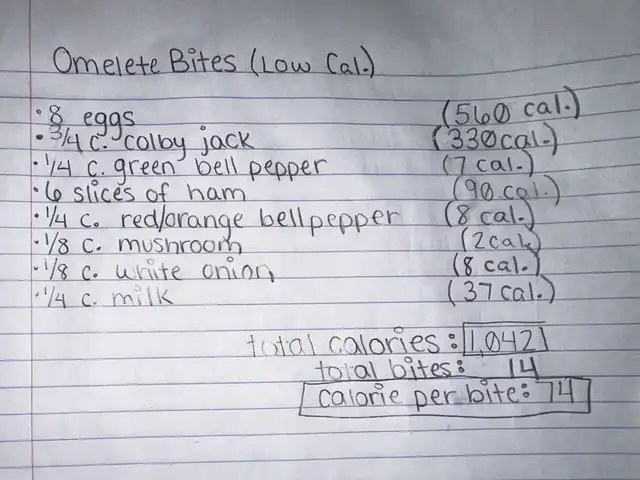 Omelete Bites (Low Cal.)
· 8 eggs (560 cal.)
· 3/4 c. colby jack (330 cal.)
· 1/4 c. green bell pepper (7 cal.)
· 6 slices of ham (90 cal.)
· 1/4 c. red/orange bell pepper (8 cal.)
· 1/8 c. mushroom (2 cal.)
· 1/8 c. white onion (8 cal.)
· 1/4 c. milk (37 cal.)
total calories: 1,042
total bites: 14
calorie per bite: 74